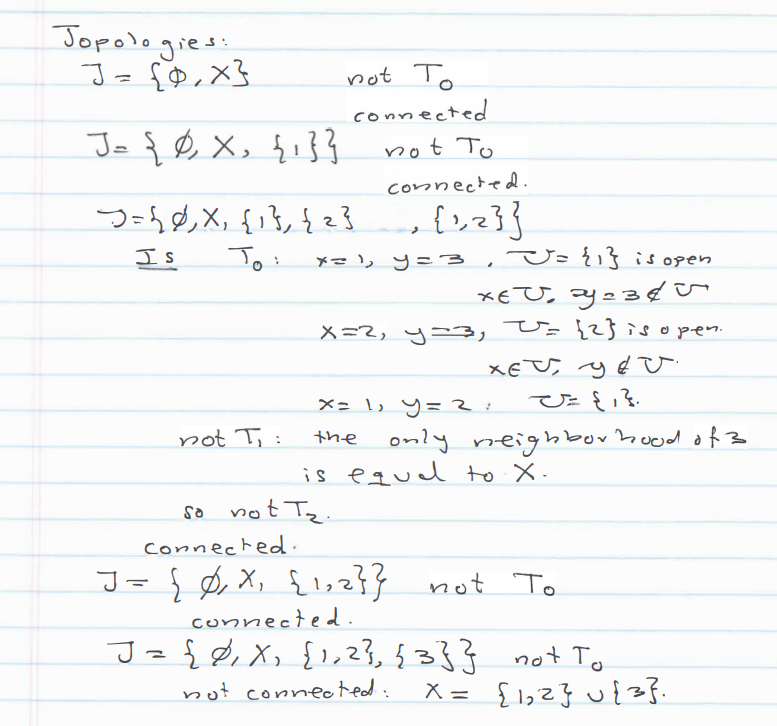 Topologies:
J = {Φ, X} not T₀
connected
J = {∅, X, {1}} not T₀
connected.
J = {∅, X, {1}, {2} , {1,2}}
Is T₀: x=1, y=3, U={1} is open
x∈U, y=3∉U
x=2, y=3, U={2} is open.
x∈U, y∉U.
x=1, y=2: U={1}.
not T₁: the only neighborhood of 3
is equal to X.
so not T₂.
connected.
J = {∅, X, {1,2}} not T₀
connected.
J = {∅, X, {1,2}, {3}} not T₀
not connected: X = {1,2}∪{3}.